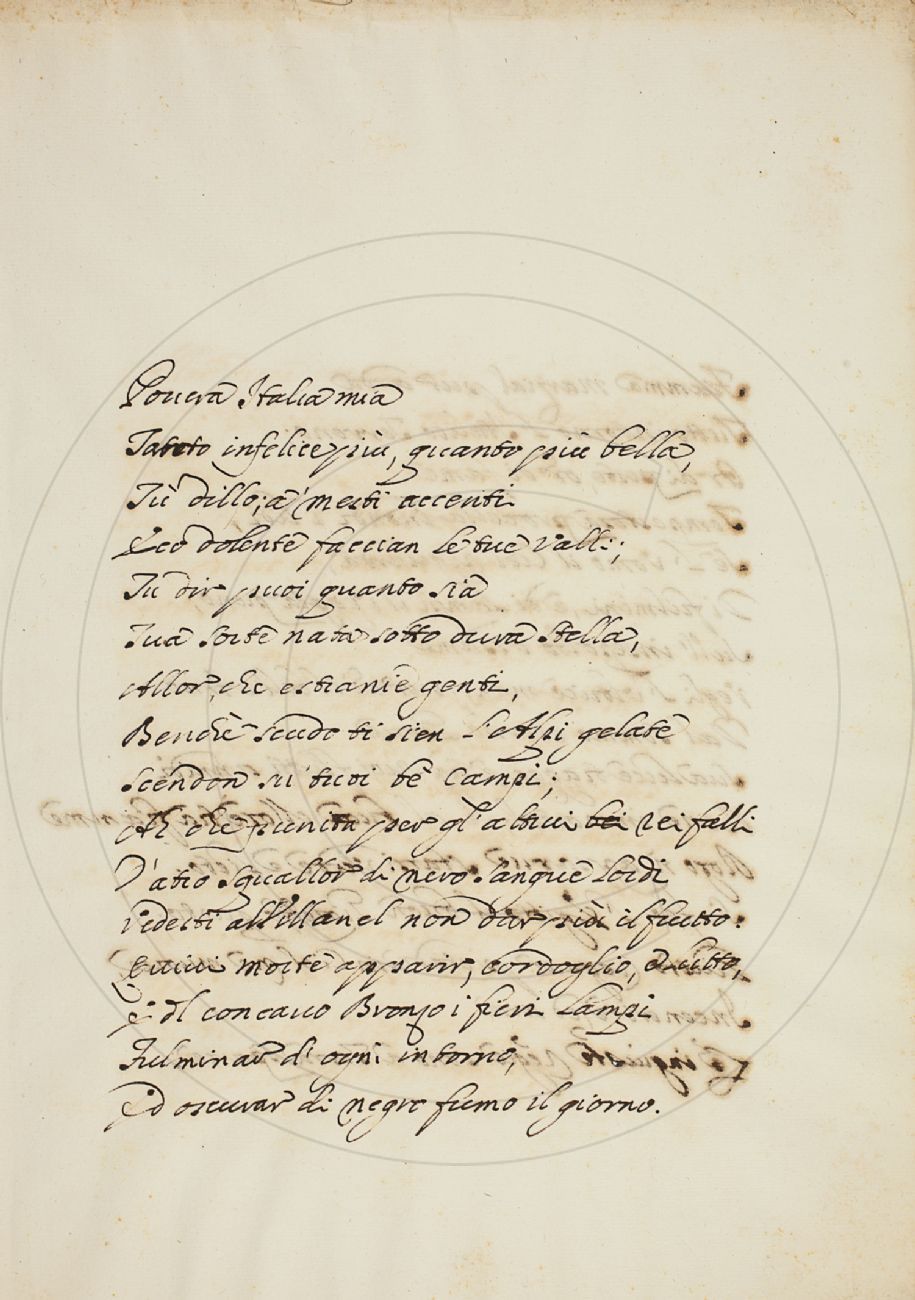 Povera Italia mia
Tanto infelice più, quanto più bella,
Tù dillo; a' mesti accenti
Eco dolente faccian le tue Valli;
Tu dir puoi quanto sia
Tua sorte nata sotto dura stella,
Allor, che estranie genti,
Benchè scudo ti sien l'Alpi gelate
Scendon su' tuoi be' Campi;
Ah che punita per gl'altrui bei rei falli
D'atro squallor di nero sangue lordi
Vedesti al Villan el non dar più il frutto:
Quivi morte apparir, cordoglio, e lutto,
E dl concavo Bronzo i fieri Lampi
Fulminar d'ogni intorno,
Ed oscurar di negro fumo il giorno.